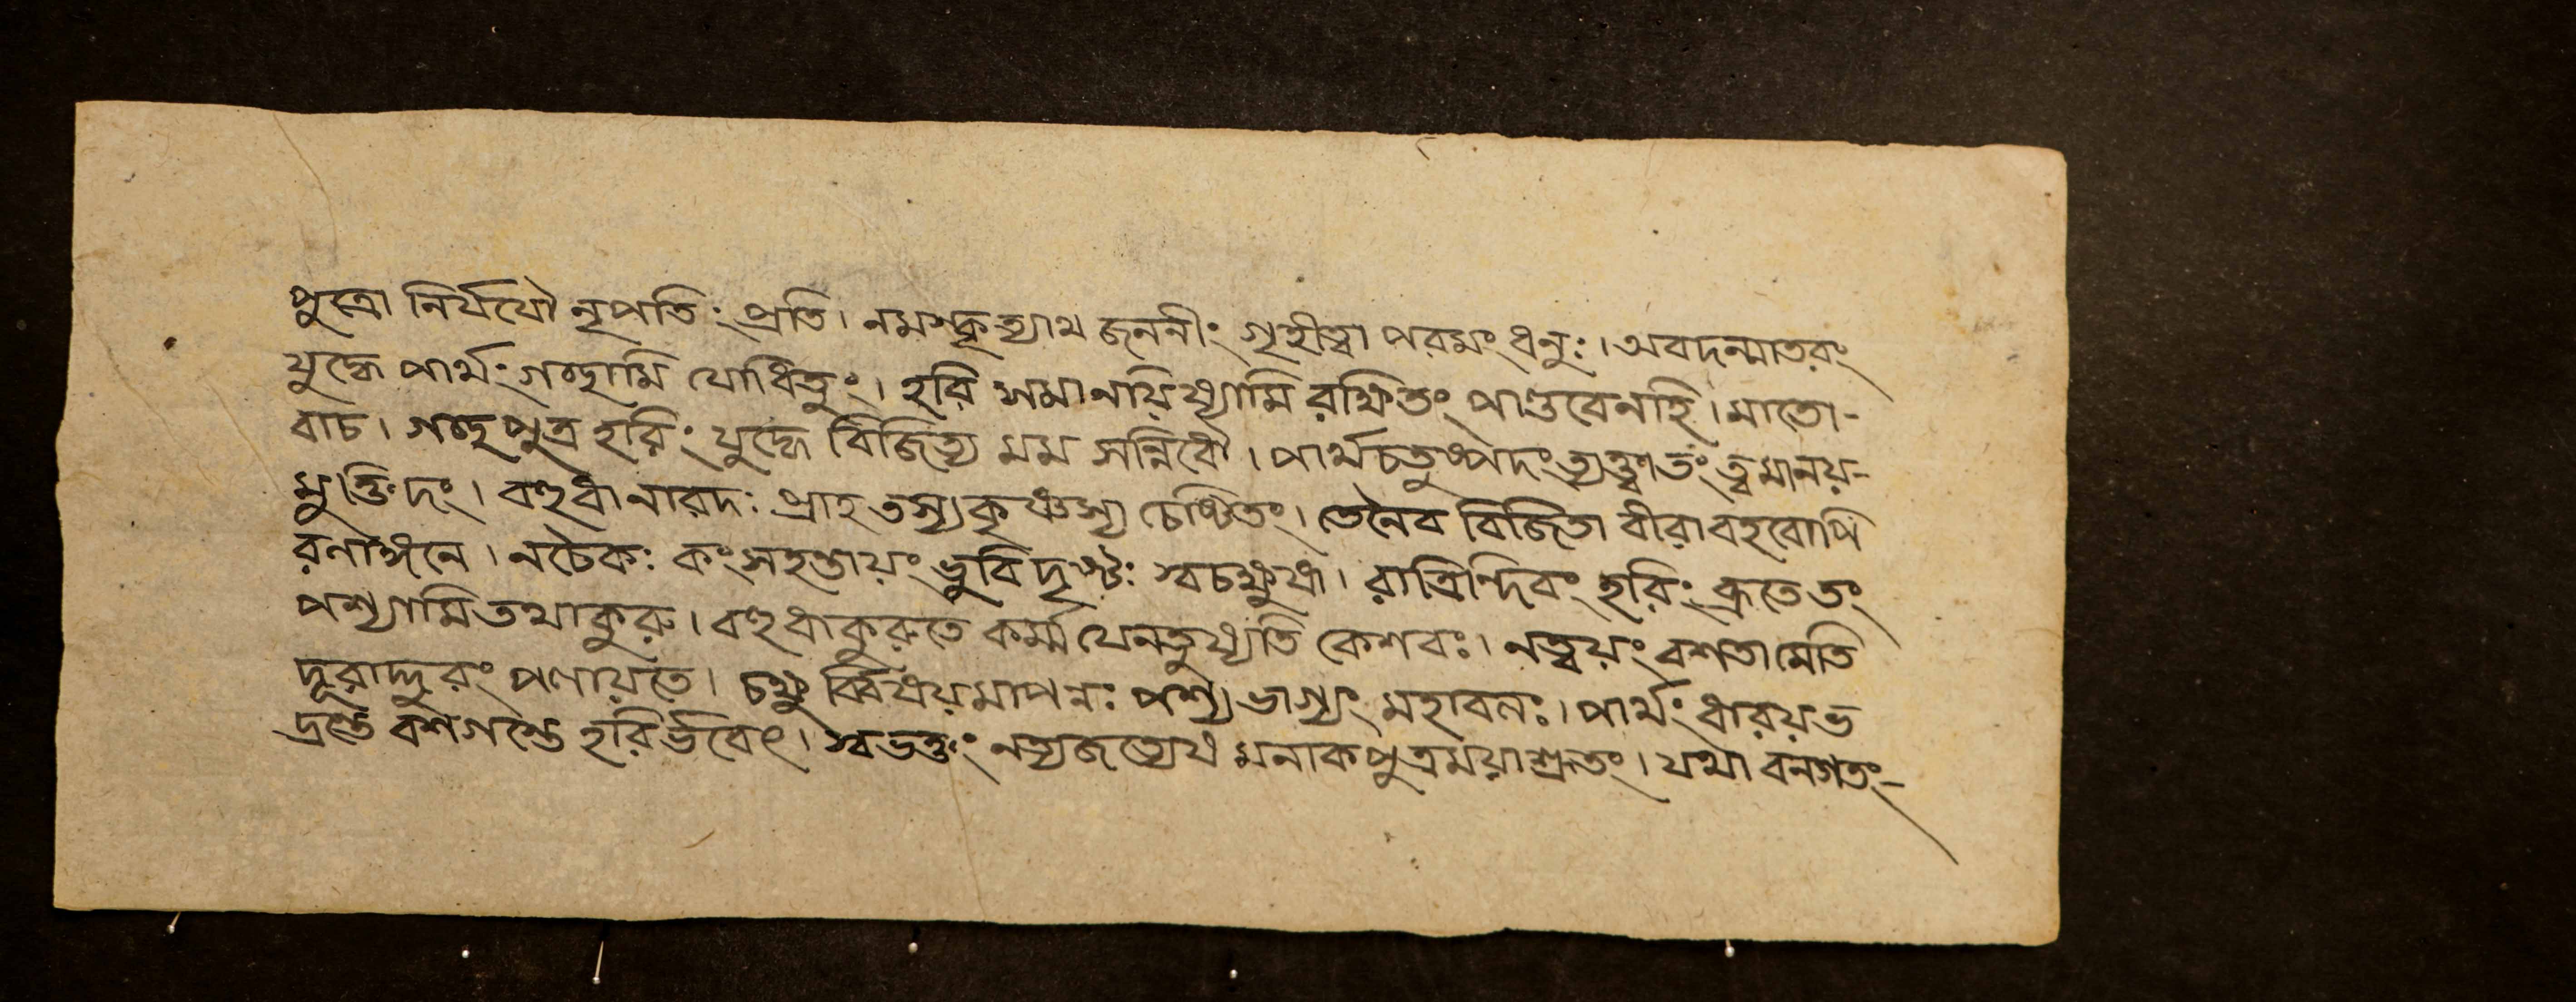 পুত্রো নির্যযৌ নৃপতিং প্রতি। নমস্কৃত্যাথ জননীং গৃহীত্বা পরমং ধনুঃ। অবদন্মাতরং
যুদ্ধে পার্থং গচ্ছামি যোধিতুং। হরি সমানায়িষ্যামি রক্ষিতং পাণ্ডবেনহি। মাতো-
বাচ। গচ্ছ পুত্র হরিং যুদ্ধে বিজিত্য মম সন্নিধৌ। পার্থ চতুষ্পদং ত্যক্ত্বা তং ত্বমানয়-
মুক্তিদং। বহুধা নারদঃ প্রাহ তস্য কৃষ্ণস্য চেষ্টিতং। তেনৈব বিজিতা বীরা বহবোপি
রণাঙ্গনে। নচৈকঃ কংসহন্তায়ং ভুবি দৃষ্টঃ স্বচক্ষুষা। রাত্রিন্দিবং হরিং ব্রূতে তং
পশ্যামি তথা কুরু। বহুধা কুরুতে কর্ম্ম যেন তুষ্যতি কেশবঃ। নত্বয়ং বশতামেতি
দূরাদ্দুরং পলায়তে। চক্ষুর্ব্বিষয়মাপন্নঃ পশ্য ভাগ্যং মহাবলঃ। পার্থং ধারয় ভ
দ্রন্তে বশগস্তে হরির্ভবেৎ। স্বভক্তং নত্যজত্যেষ মনাকপুত্র ময়াশ্রুতং। যথা বনগতং-